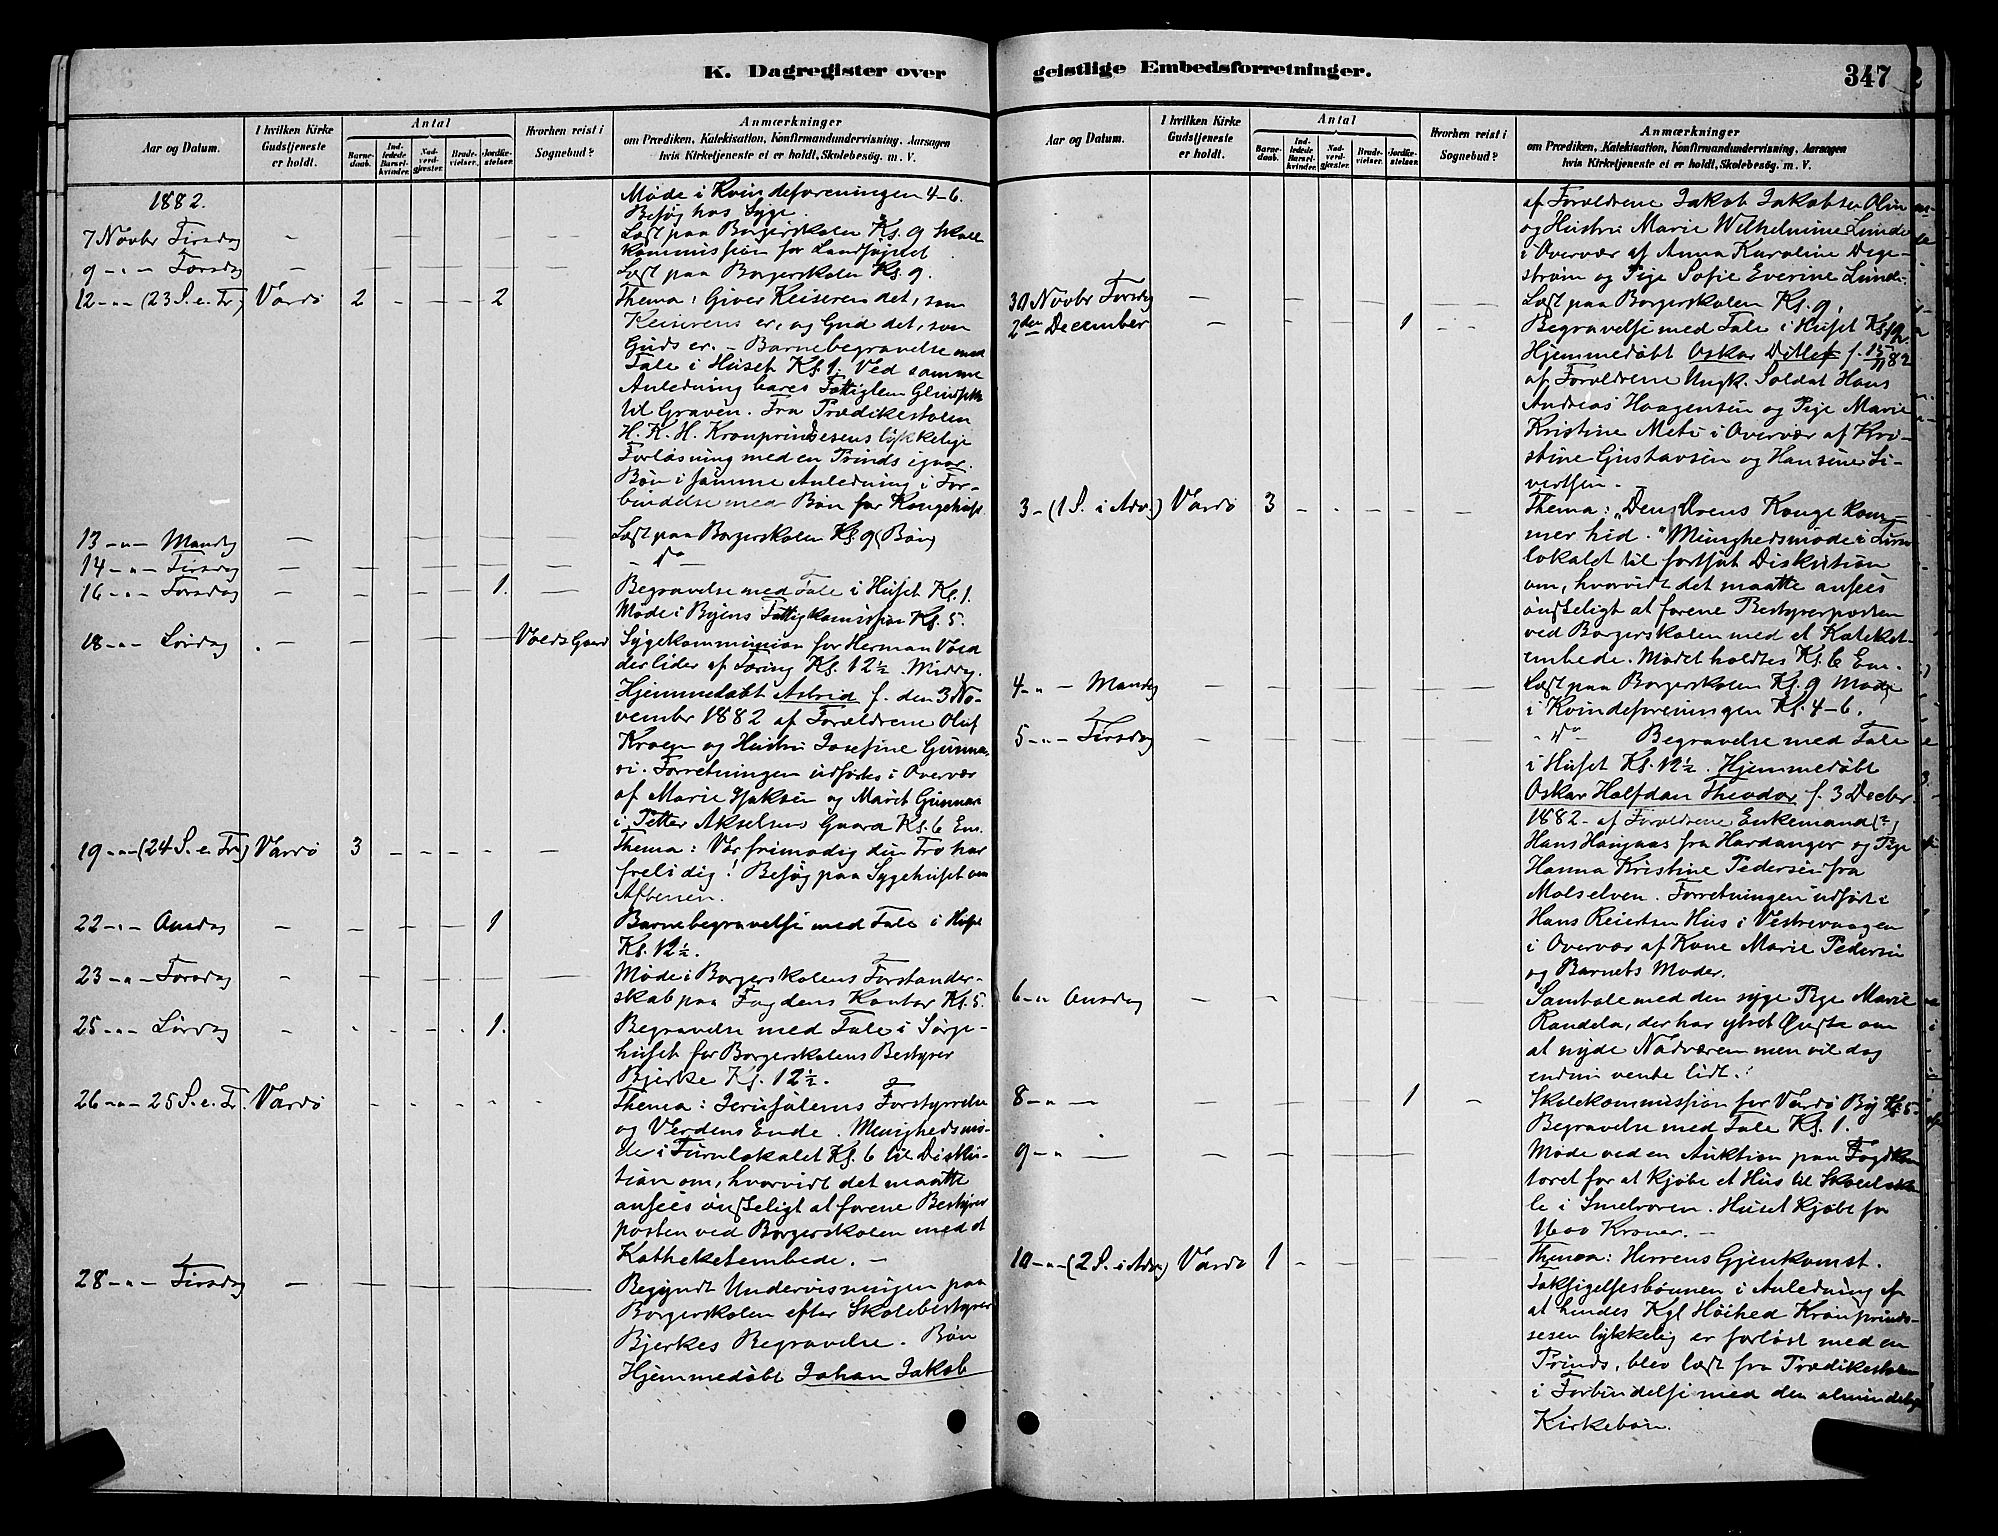 K. Dagregister over
geistlige Embedsforretninger.
347
Aar og Datum.
I hvilken Kirke
Gudstjeneste
er holdt.
Antal
Barne-
daab.
Ind-
ledede
Barsel-
kvinder.
Nad-
verd-
gjæster.
Brude-
vielser.
Jordfæ-
stelser.
Hvorhen reist i
Sognebud?
Anmærkninger
om Prædiken, Katekisation, Konfirmandundervisning, Aarsagen
hvis Kirketjeneste ei er holdt, Skolebesög. m. V.
1882.
Møde i Kvindeforeningen 4-6.
Besøg hos Syge.
7 Novbr Tirsdag - Læst paa Borgerskolen Kl. 9 Skole
kommission for Landsognet
9 - " - Torsdag - Læst paa Borgerskolen Kl. 9.
12 - " - (23 S. e. Tr) Vardø 2 - - - 2 Thema: Giver Keiseren det, som
Keiserens er, og Gud det, som
Guds er. - Barnebegravelse med
Tale i Huset Kl. 1. Ved samme
Anledning bares Fattiglem
til Graven. Fra Prædikestolen
H. K. H. Kronprindsesens lykkelige
Forløsning med en Prinds igaar.
Bøn i samme Anledning i For-
bindelse med Bøn for Kongehuset
13 - " - Mandag - Læst paa Borgerskolen Kl. 9 (Bøn)
14 - " - Tirsdag - - do -
16 - " - Torsdag - 1. Begravelse med Tale i Huset Kl. 1.
Møde i Byens Fattigkomission Kl. 5.
18 - " - Lørdag - Voeds Gaard Sygekommunion for Herman Voed
der lider af Tæring Kl. 12½ Middag.
Hjemmedøbt Astrid f. den 3 No-
vember 1882 af Forældrene Oluf
Kroen og Hustru Josefine Gunna-
ri. Forretningen udførtes i Overvær
af Marie Isaksen og Marit Gunnari
i Petter Akselsens Gaard Kl. 6 Em.
19 - " - (24 S. e. Tr) Vardø 3 - - - - - Thema: Vær frimodig din Tro har
frelst dig! Besøg paa Sygehuset om
Aftenen.
22 - " - Onsdag - 1 Barnebegravelse med Tale i Huset
Kl. 12½.
23 - " - Torsdag - Møde i Borgerskolens Forstander-
skab paa Fogdens Kontor Kl. 5.
25 - " - Lørdag - 1. Begravelse med Tale i Sørge-
huset for Borgerskolens Bestyrer
Bjerke Kl. 12½.
26 - " - 25 S. e. Tr. Vardø - Thema: Jerusalems Forstyrrelse
og Verdens Ende. Menighedsmø-
de i Turnlokalet Kl. 6 til Disku-
tion om, hvorvidt det maatte
ansees ønskeligt at forene Bestyrer
posten ved Borgerskolen med et
Kathekets embede. -
28 - " - Tirsdag - Begyndt Undervisningen paa
Borgerskolen efter Skolebestyrer
Bjerkes Begravelse. Bøn
Hjemmedøbt Johan Jakob
Aar og Datum.
I hvilken Kirke
Gudstjeneste
er holdt.
Antal
Barne-
daab.
Ind-
ledede
Barsel-
kvinder.
Nad-
verd-
gjæster.
Brude-
vielser.
Jordfæ-
stelser.
Hvorhen reist i
Sognebud?
Anmærkninger
om Prædiken, Katekisation, Konfirmandundervisning, Aarsagen
hvis Kirketjeneste ei er holdt, Skolebesög. m. V.
af Forældrene Jakob Jakobsen Olin
og Hustru Marie Wilhelmine Lunde
i Overvær af Anna Karoline Dege-
strøm og Pige Sofie Everine Lunde.
30 Novbr Torsdag - Læst paa Borgerskolen Kl. 9.
2den December - 1 - - Begravelse med Tale i Huset Kl. 12.
Hjemmedøbt Oskar Ditlef f. 15/11 82
af Forældrene Ungk. Soldat Hans
Andreas Haagensen og Pige Marie
Kristine Meti i Overvær af Kri-
stine Gustavsen og Hansine Si-
vertsen. -
3 - (1 S. i Adv.) Vardø 3 - - - - - Thema: "Den Ærens Konge kom-
mer hid." Menighedsmøde i Turn
lokalet til fortsat Diskution
om, hvorvidt det maatte ansees
ønskeligt at forene Bestyrerposten
ved Borgerskolen med et Kateket-
embede. Mødet holdtes Kl. 6 Em.
4 - " - Mandag - Læst paa Borgerskolen Kl. 9 Møde
i Kvindeforeningen Kl. 4-6.
5 - " - Tirsdag - - do - Begravelse med Tale
i Huset Kl. 12½. Hjemmedøbt
Oskar Halfdan Theodor f. 3 Decbr
1882 - af Forældrene Enkemand (?)
Hans Haugaas fra Hardanger og Pige
Hanna Kristine Pedersen fra
Målselven. Forretningen udført i
Hans Reiertsen Hus i Vestrevaagen
i Overvær af Kone Marie Pedersen
og Barnets Moder.
6 - " Onsdag - Samtale med den syge Pige Marie
Randela, der har ytret Ønske om
at nyde Nadværen men vil dog
endnu vente lidt.
8 - " - 1 - Skolekommission for Vardø By Kl. 5
Begravelse med Tale Kl. 1.
9 - " - Møde ved en Auktion paa Fogdkon
toret for at kjøbe et Hus til Skoleloka
le i Smelroren. Huset kjøbt for
1600 Kroner. -
10 - " - (2 S. i Adv.) Vardø 1 - - Thema: Herrens Gjenkomst.
Taksigelsesbønnen i Anledning af
at hendes Kgl Høihed Kronprinds-
sesen lykkelig er forløst med en
Prinds, blev læst fra Prædikestolen
i Forbindelse med den almindelige
Kirkebøn.